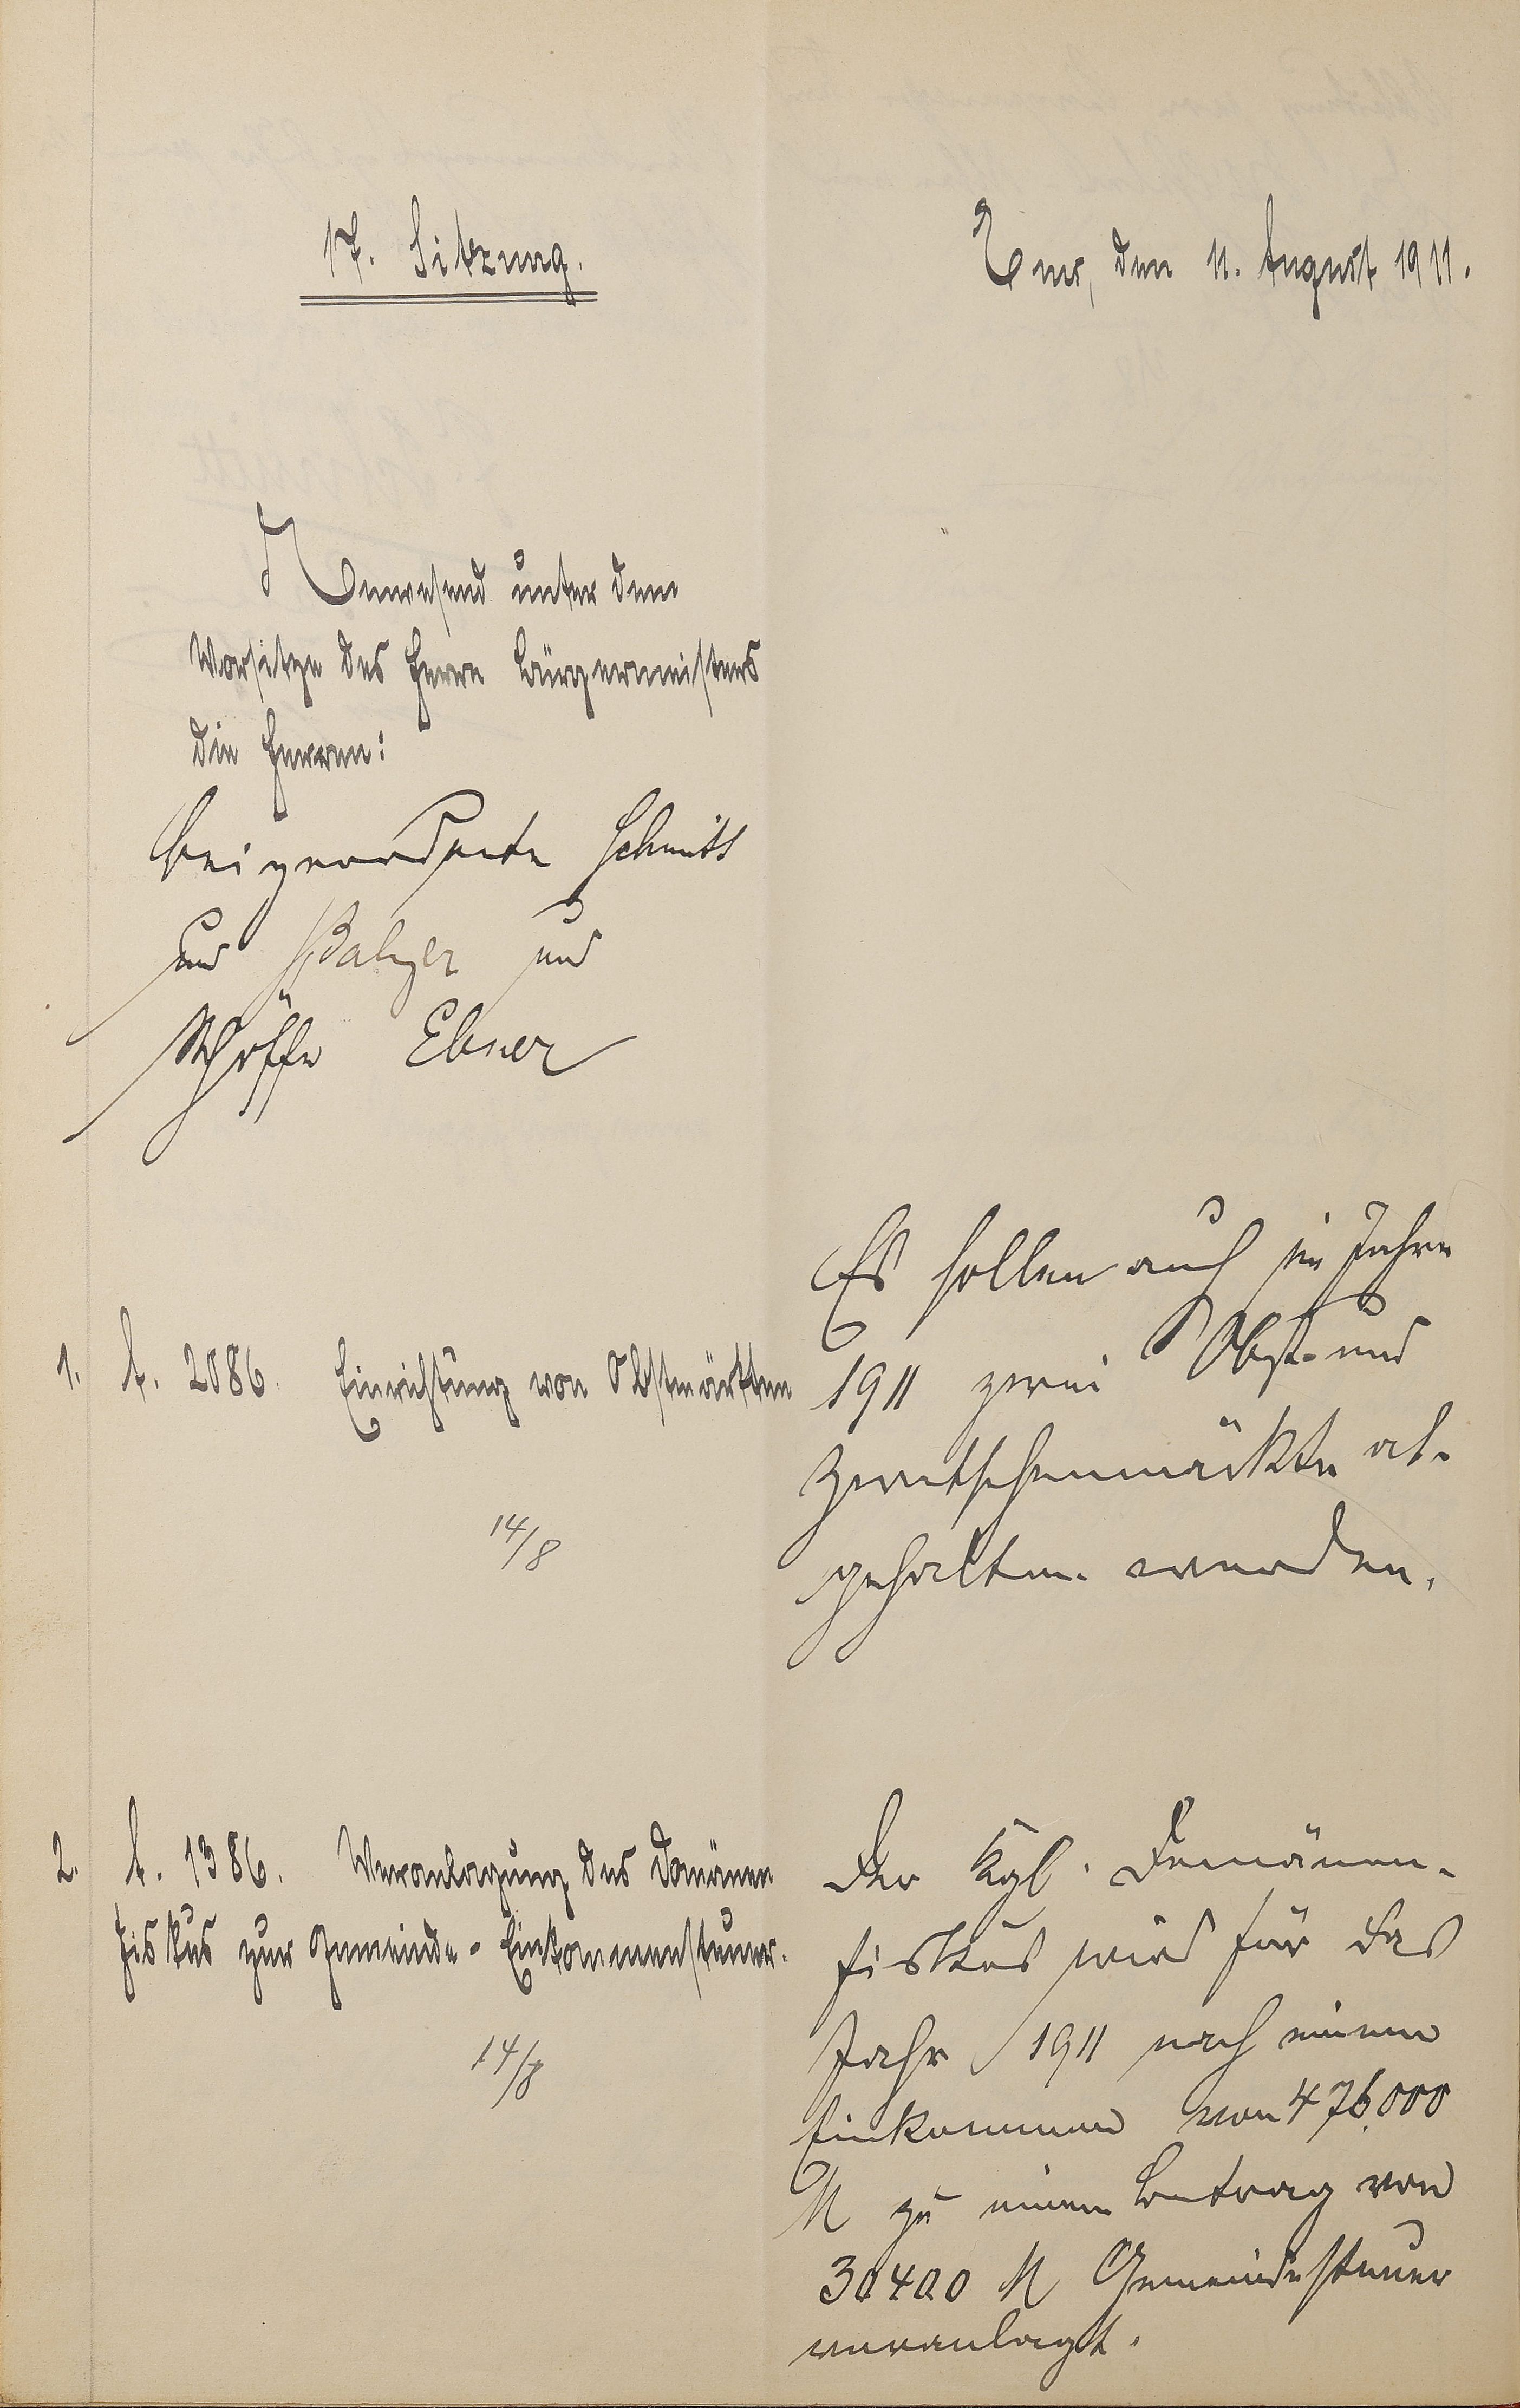 17. Sitzung.
Ems, den 11. August 1911.
Anwesend unter dem
Vorsitze des Herrn Bürgermeisters
die Herren:
Beigeordnete Schmitt
und Balzer und
Schöffe Ebner
1. A. 2086. Einrichtung von Obstmärkten
14/8
Es sollen auch im Jahre
1911 zwei Obst- und
Zwetschenmärkte ab-
gehalten werden.
2. A. 1386. Veranlagung des Domänen
fiskus zur Gemeinde-Einkommensteuer.
14/8
Der Kgl. Domänen-
fiskus wird für das
Jahr 1911 nach einem
Einkommen von 476.000
M zu einem Betrag von
30400 M Gemeindesteuer
veranlagt.